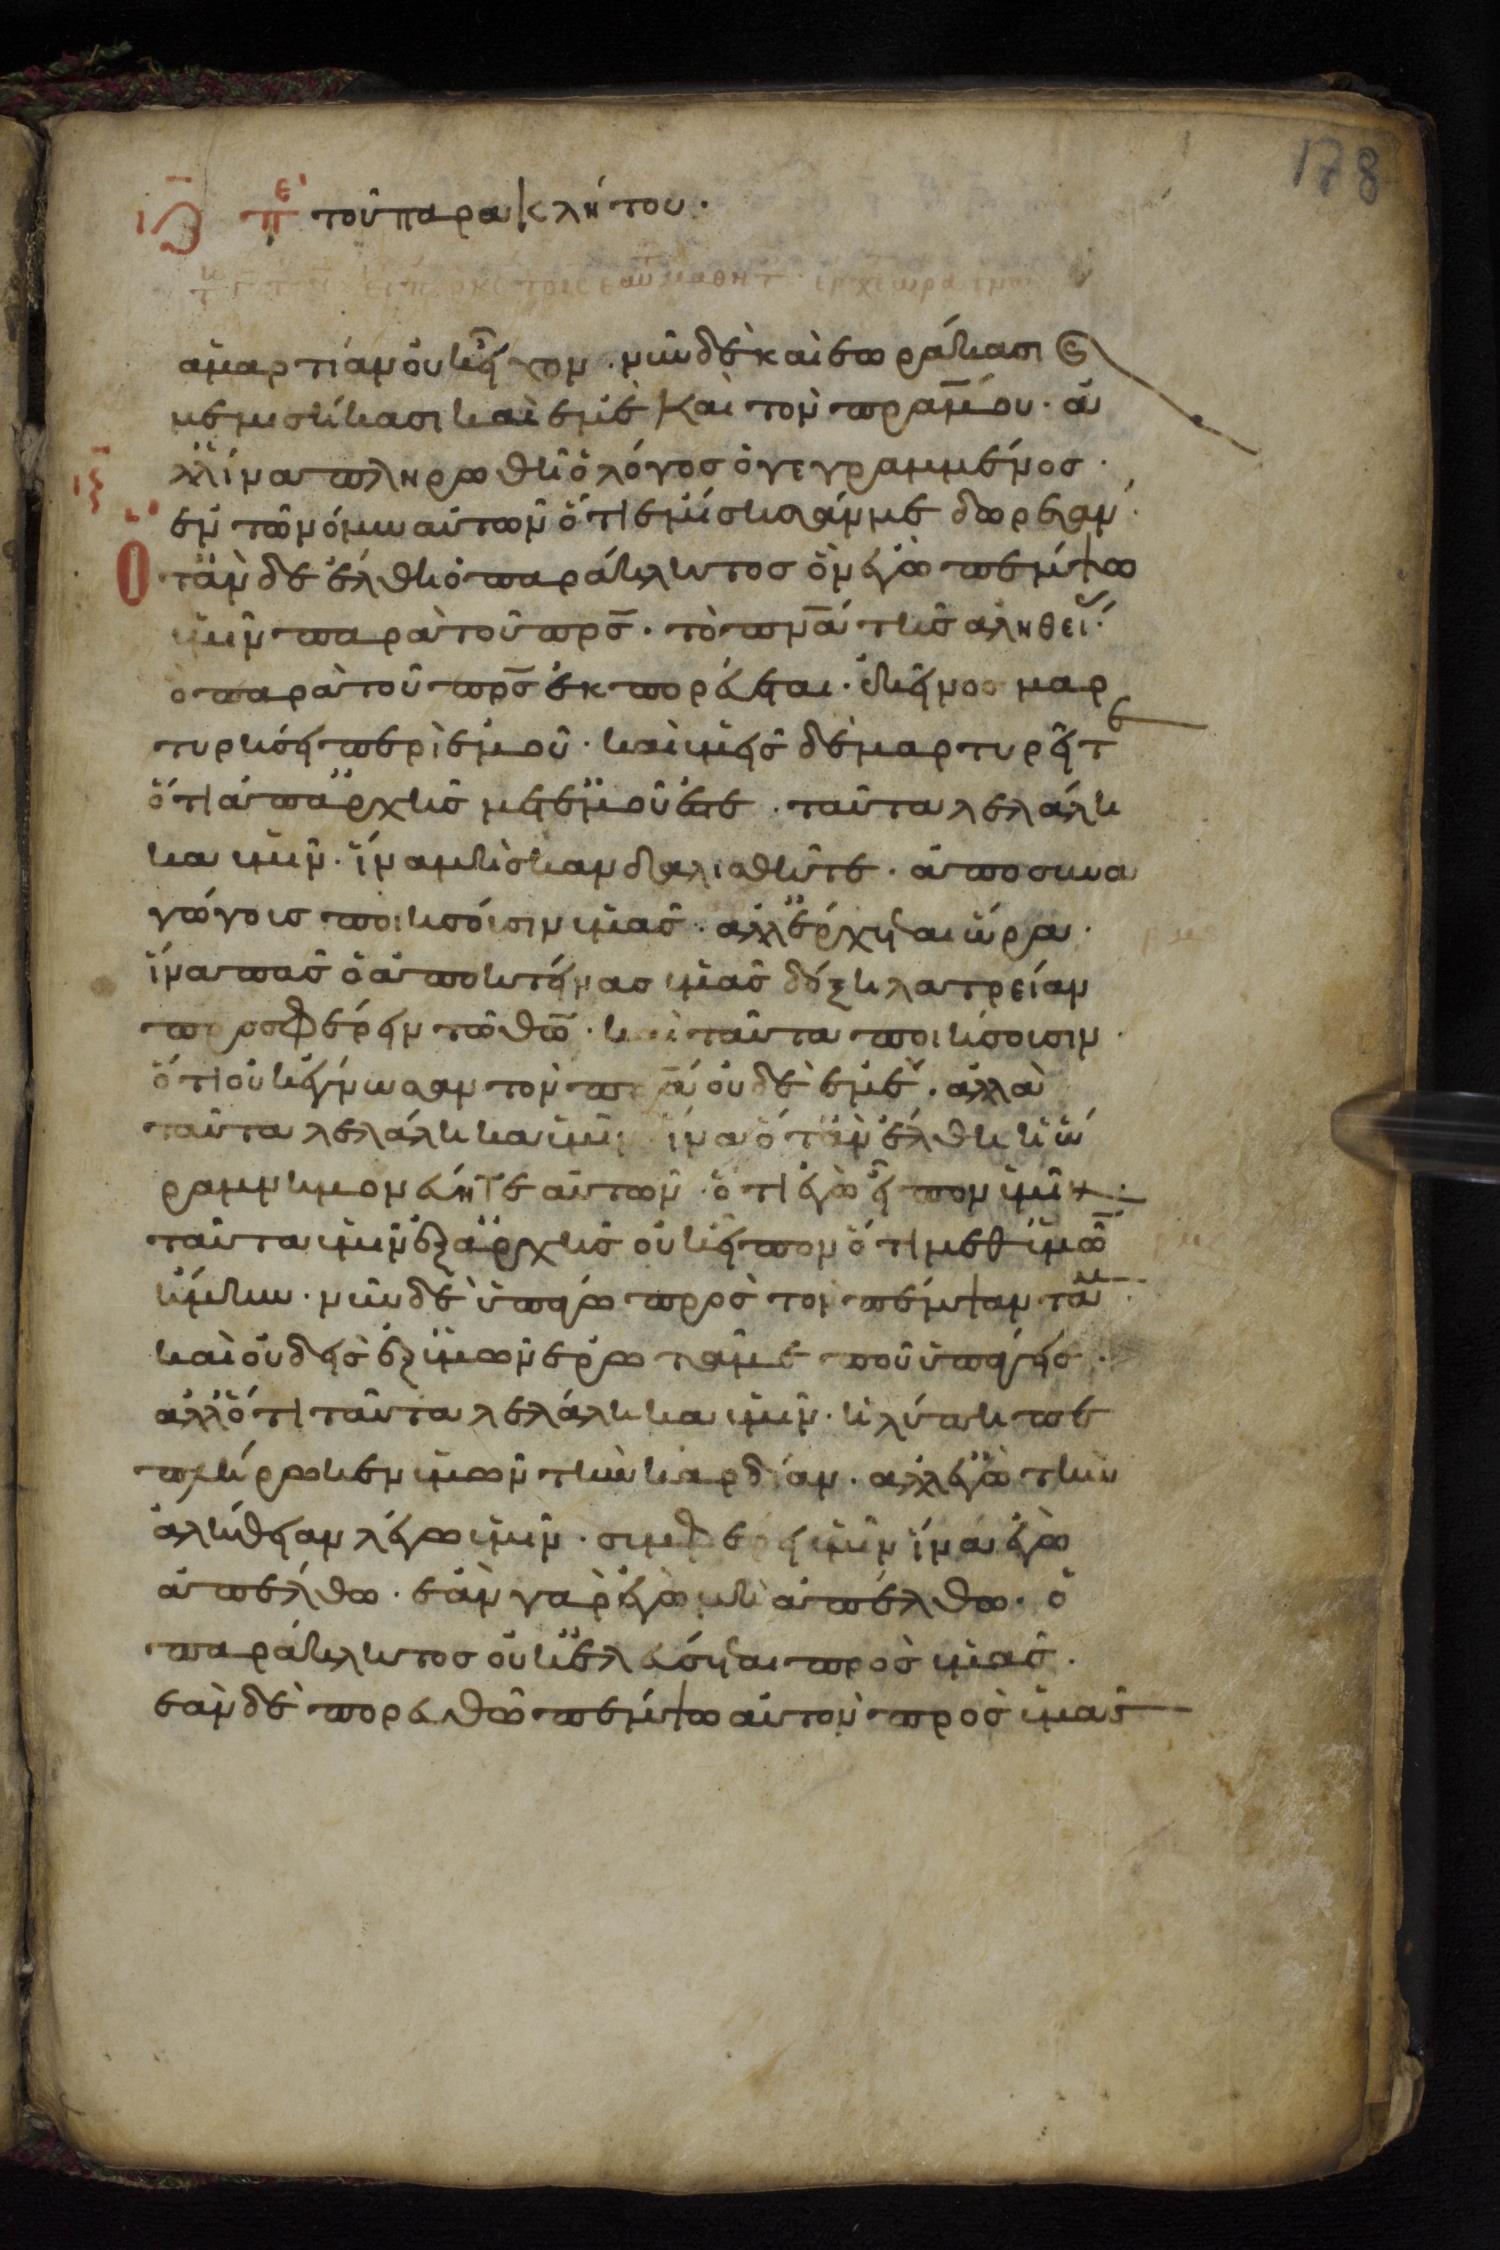 178
ις πε τοῦ παρακλήτου·
ἁμαρτίαν οὐκ εἶχον· νῦν δὲ καὶ ἑωράκασι (καὶ)
μεμισήκασι καὶ ἐμὲ καὶ τὸν πρα μου· ἀλ
λ' ἵνα πληρωθῆ ὁ λόγος ὁ γεγραμμένος·
ἐν τῶ νόμω αὐτῶν ὅτι ἐμίσησάν με δωρεάν·
Ὅταν δὲ ἔλθη ὁ παράκλητος ὃν ἐγὼ πέμψω
ὑμῖν παρὰ τοῦ πρς· τὸ πνα τῆς ἀληθεί
ὃ παρὰ τοῦ πρς ἐκπορεύεται· ἐκεῖνος μαρ
τυρήσει περὶ ἐμοῦ· καὶ ὑμεῖς δὲ μαρτυρεῖτε
ὅτι ἀπ' ἀρχῆς μετ' ἐμοῦ ἐστε· ταῦτα λελάλη
κα ὑμῖν· ἵνα μὴ σκανδαλισθῆτε· ἀποσυνα
γώγοις ποιησόισιν ὑμᾶς· ἀλλ' ἔρχεται ὥρα·
ἵνα πᾶς ὁ ἀποκτείνας ὑμᾶς δόξη λατρείαν
προσφέρειν τῶ θω· καὶ ταῦτα ποιήσοισιν·
ὅτι οὐκ ἔγνωσαν τὸν πρα οὐδὲ ἐμέ· ἀλλὰ
ταῦτα λελάληκα ὑμῖν ἵνα ὅταν ἔλθη ἡ ὥ
ρα μνημονεύητε αὐτῶν· ὅτι ἐγὼ εἶπον ὑμῖν·
ταῦτα ὑμῖν ἐξ ἀρχῆς οὐκ εἶπον ὅτι μεθ' ὑμῶ
ἤμην· νῦν δὲ ὑπάγω πρὸς τὸν πέμψαντα μ
καὶ οὐδεὶς ἐξ ὑμῶν ἐρωτᾶ με ποῦ ὑπάγεις·
ἀλλ' ὅτι ταῦτα λελάληκα ὑμῖν· ἡ λύπη πε
πλήρωκεν ὑμῶν τὴν καρδίαν· ἀλλ' ἐγὼ τὴν
ἀλήθειαν λέγω ὑμῖν· συμφέρει ὑμῖν ἵνα ἐγὼ
ἀπέλθω· ἐὰν γὰρ ἐγὼ μὴ ἀπέλθω· ὁ
παράκλητος οὐκ ἐλεύσεται πρὸς ὑμᾶς·
ἐὰν δὲ πορευθῶ πέμψω αὐτὸν πρὸς ὑμᾶς